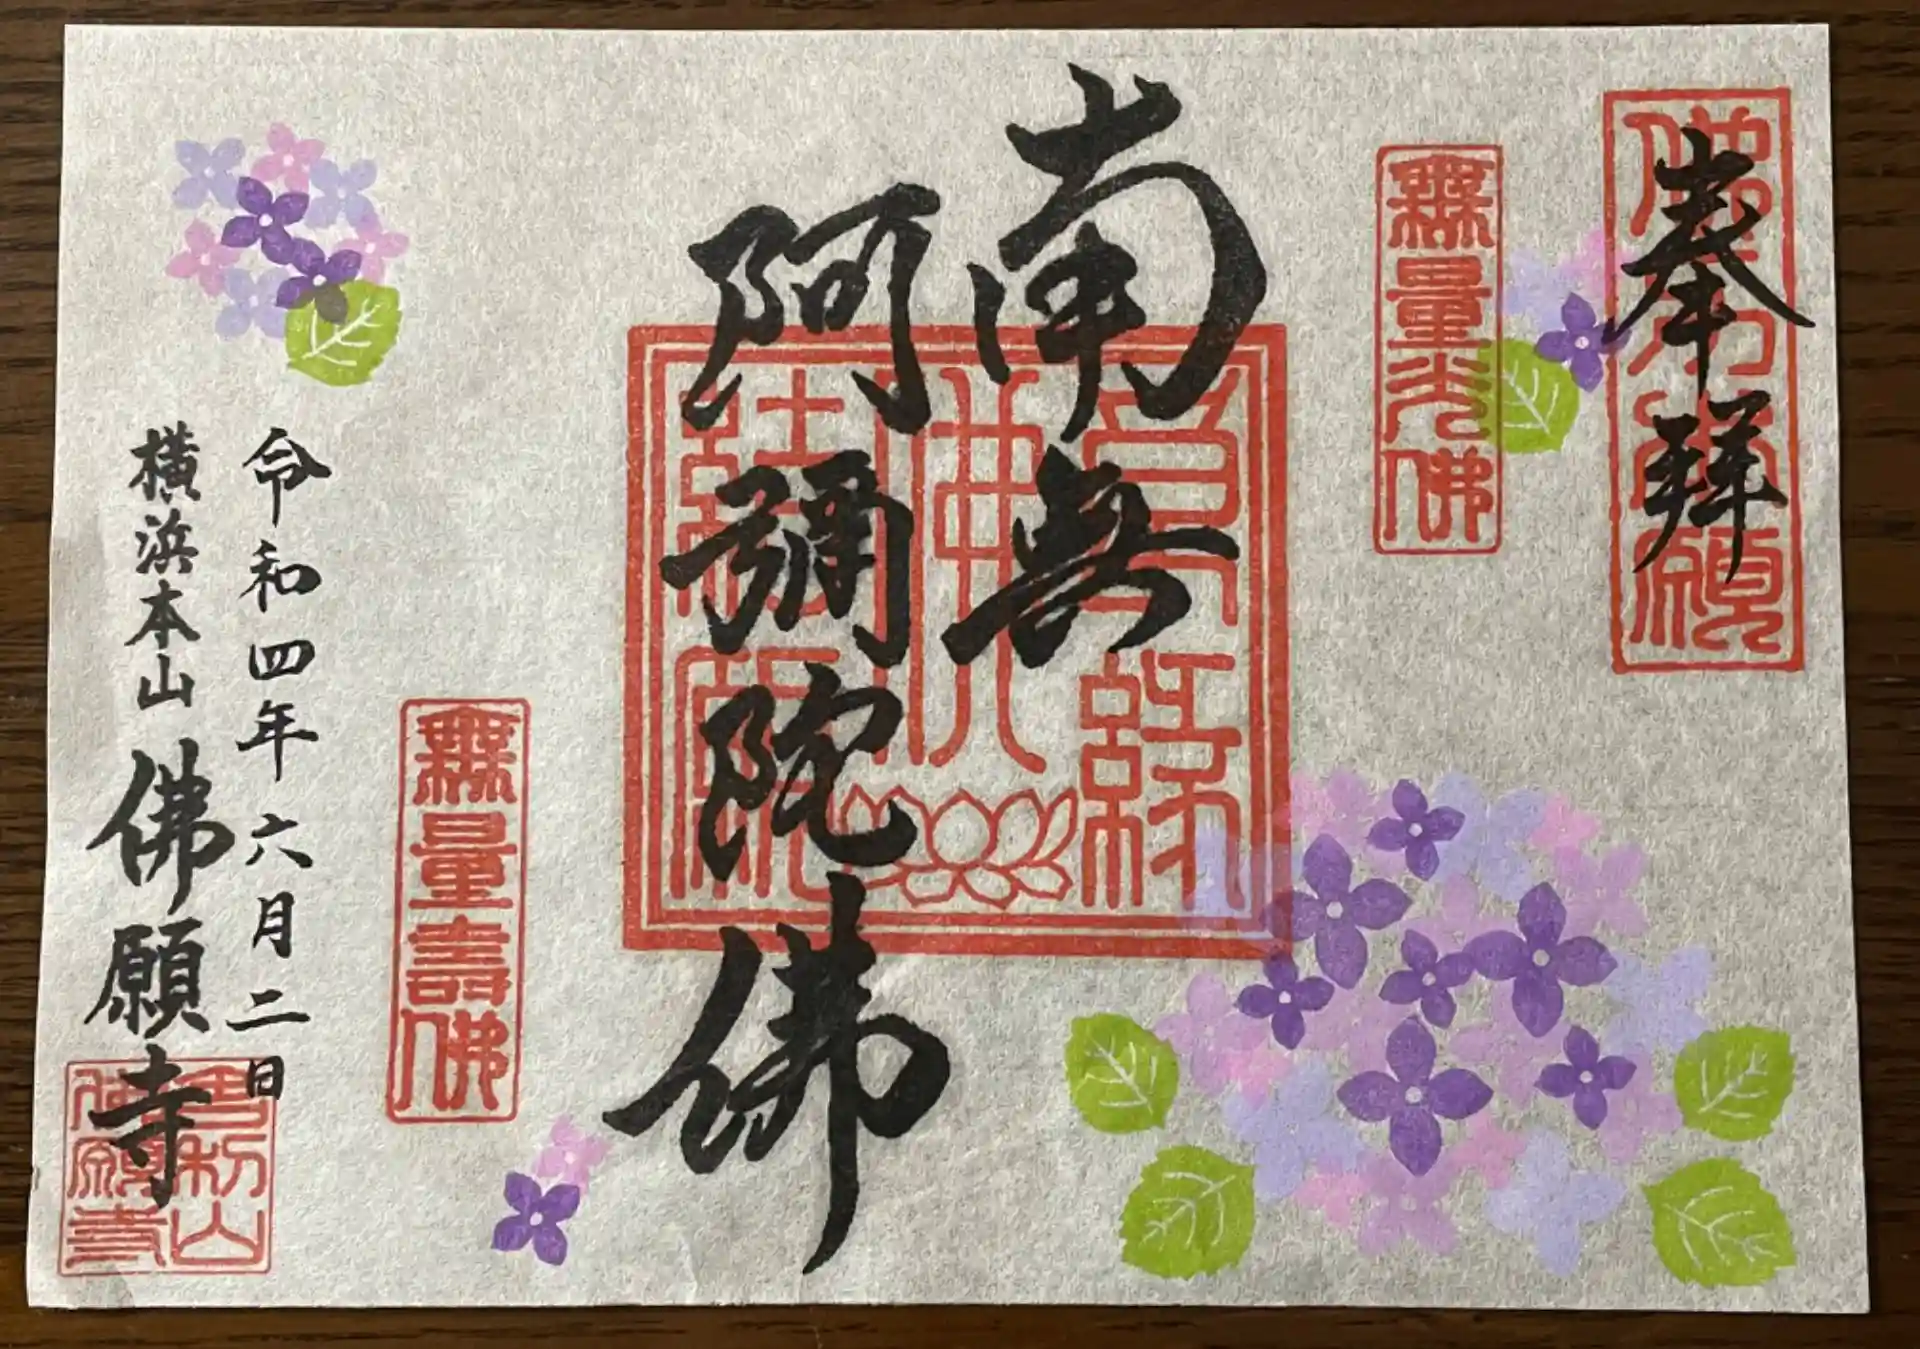 奉拜
無量光佛
南無
阿彌陀佛
無量壽佛
令和四年六月二日
横浜本山 佛願寺
佛願寺